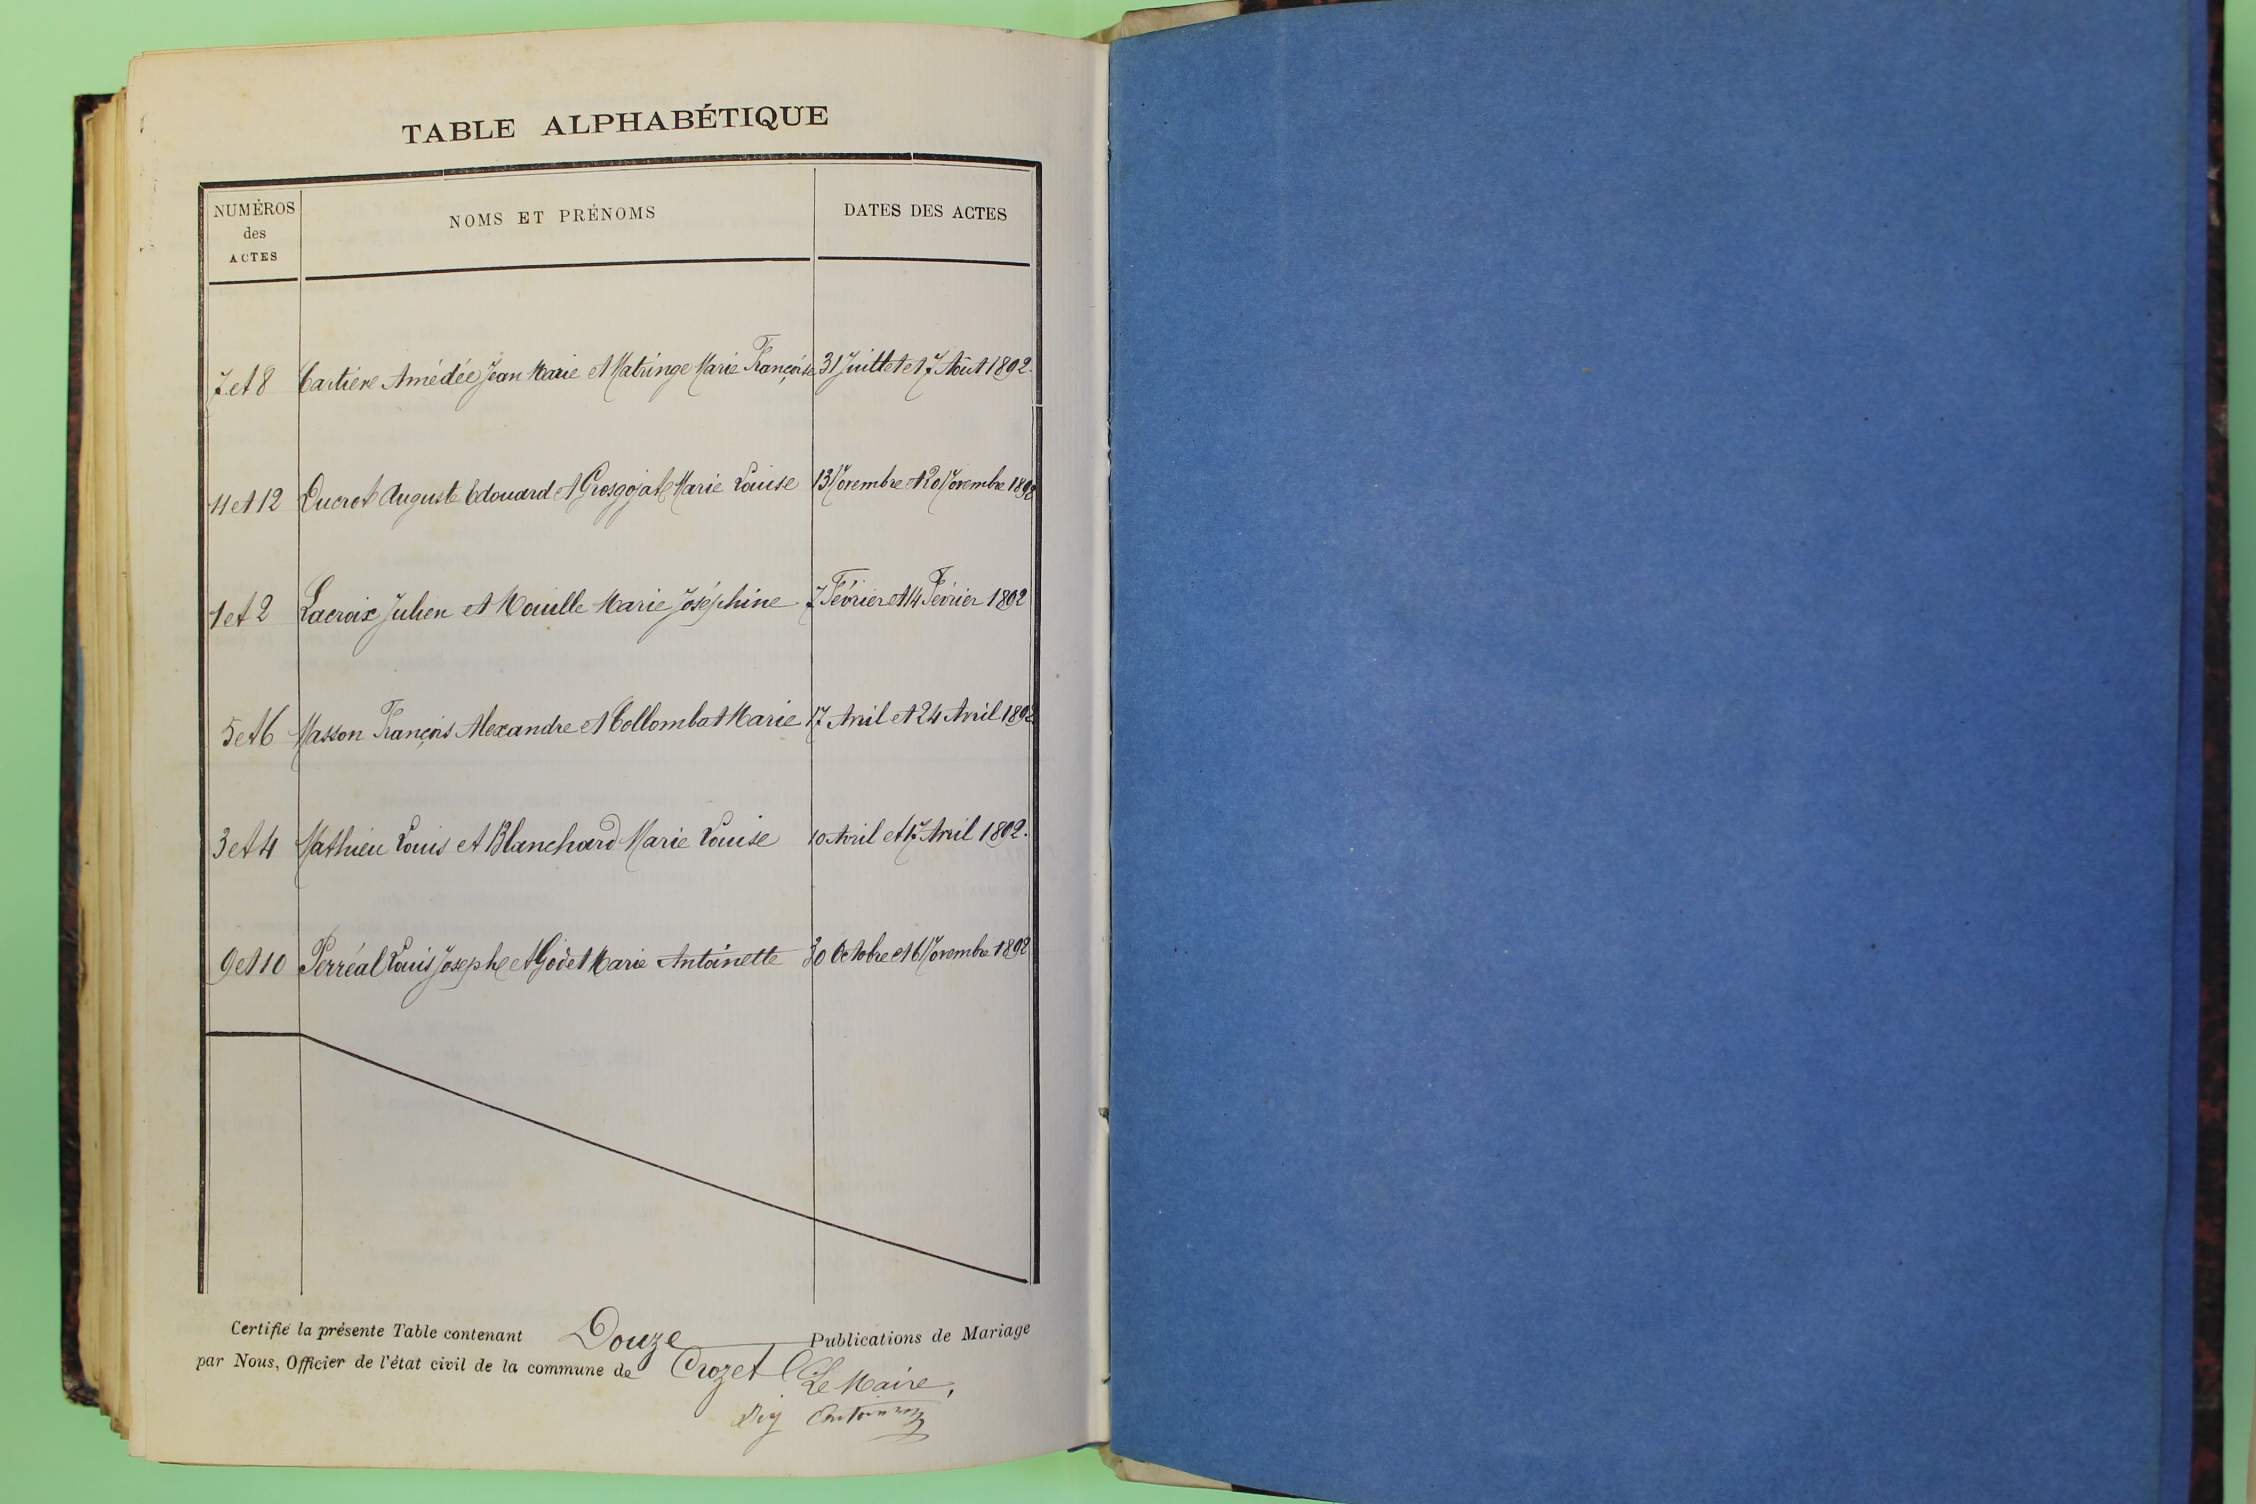 TABLE ALPHABÉTIQUE
NUMÉROS des ACTES NOMS ET PRÉNOMS DATES DES ACTES
7 et 8 Cartière Amédée Jean Marie et Matringe Marie Françoise 31 Juillet et 7 Août 1892.
11 et 12 Ducrot Auguste Edouard et Grosgojat Marie Louise 13 Novembre et 20 Novembre 1892
1 et 2 Lacroix Julien et Mouille Marie Joséphine 7 Février et 14 Février 1892
5 et 6 Masson François Alexandre et Collombat Marie 17 Avril et 24 Avril 1892
3 et 4 Mathieu Louis et Blanchard Marie Louise 10 Avril et 17 Avril 1892.
9 et 10 Perréal Louis Joseph et Godet Marie Antoinette 30 Octobre et 6 Novembre 1892
Certifié la présente Table contenant Douze Publications de Mariage
par Nous, Officier de l'état civil de la commune de Crozet
Le Maire,